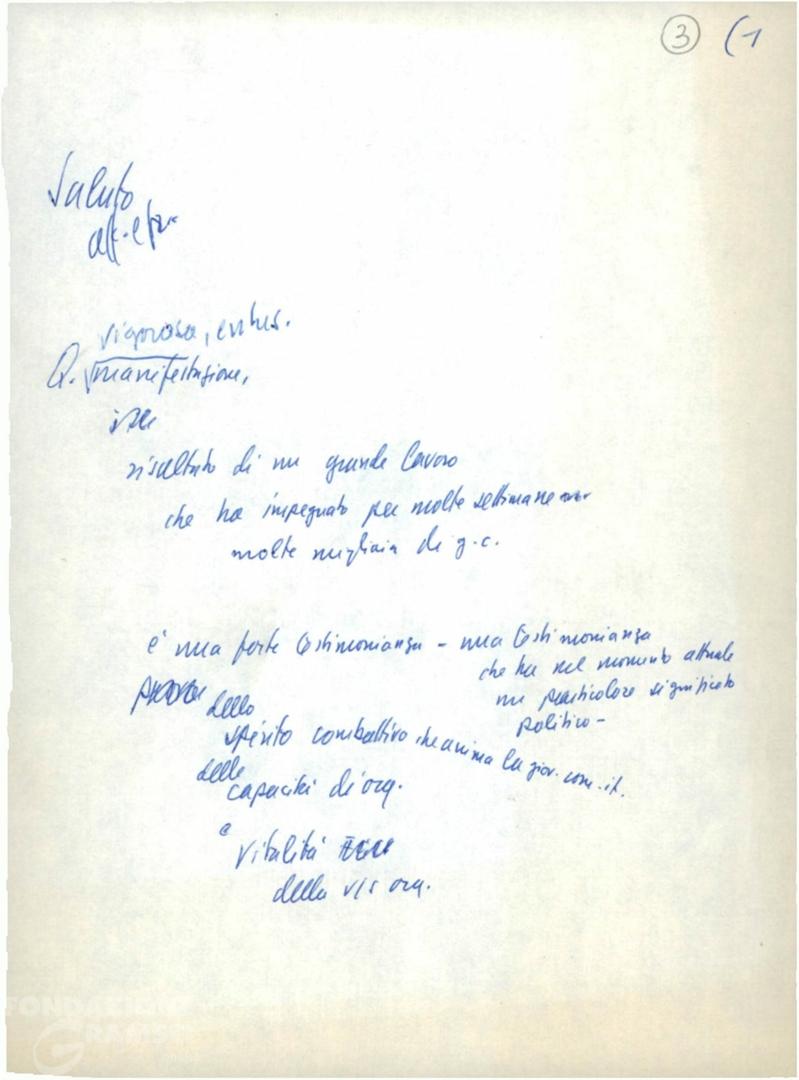 3 (1
Saluto
aff. e fr.
vigorosa, entus.
Q. manifestazione,
risultato di un grande lavoro
che ha impegnato per molte settimane
molte migliaia di g.c.
è una forte testimonianza - una testimonianza
che ha nel momento attuale
un particolare significato
politico -
dello
spirito combattivo che anima la giov. com. it.
delle
capacità di org.
e
vitalità
della vs org.
FONDAZIONE
GRAMSCI